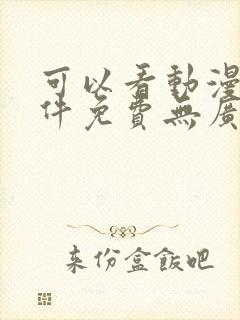 可以看動漫
件免費無廣
来份盒飯吧